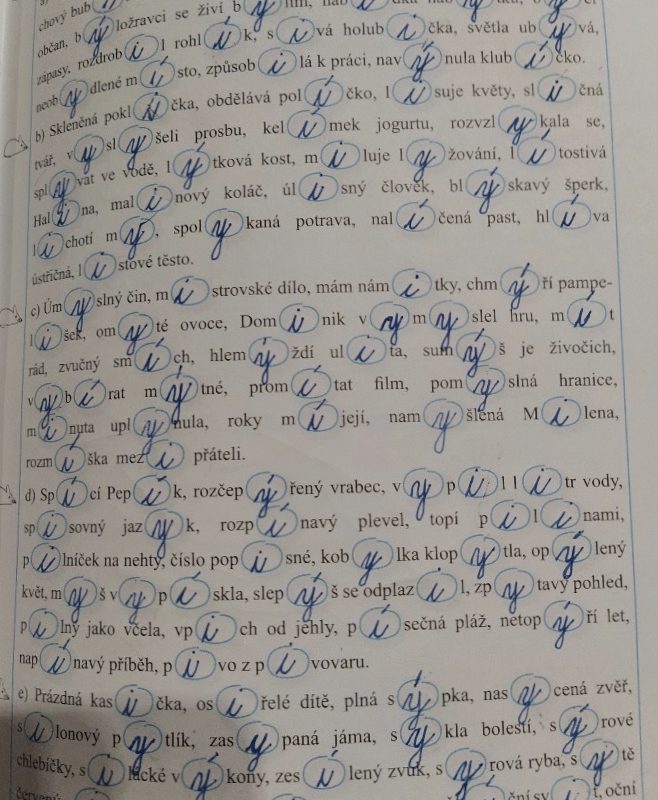 chový bub
občan, býložravci se živí b
zápasy, rozdrobil rohlík, sivá holubička, světla ubývá,
neobydlené místo, způsobilá k práci, navýnula klubíčko.
b) Skleněná poklička, obdělává políčko, lisuje květy, slíčná
tvář, vyslyšeli prosbu, kelímek jogurtu, rozvzlykala se,
splyvat ve vodě, lýtková kost, miluje lyžování, lítostivá
Halina, malinový koláč, úlisný člověk, blýskavý šperk,
lichotí mý, spolykaná potrava, nalíčená past, hlíva
ústřičná, listové těsto.
c) Úmyslný čin, mistrovské dílo, mám námitky, chmýří pampe-
lišek, omyté ovoce, Dominik vymyslel hru, mít
rád, zvučný smích, hlemýždí ulita, sumýš je živočich,
vybírat mýtné, promítat film, pomyslná hranice,
minuta uplynula, roky míjejí, namyšlená Milena,
rozmíška mezi přáteli.
d) Spící Pepík, rozčepýřený vrabec, vypil litr vody,
spisovný jazyk, rozpínavý plevel, topí pilinami,
pilníček na nehty, číslo popisné, kobylka klopýtla, opylený
květ, myš vypískla, slepýš se odplazil, zpytavý pohled,
pilný jako včela, vpich od jehly, písečná pláž, netopýří let,
napínavý příběh, pivo z pivovaru.
e) Prázdná kasička, osiřelé dítě, plná sýpka, nasycená zvěř,
silonový pytlík, zasypaná jáma, sykla bolestí, sýrové
chlebíčky, s lické výkony, zesílený zvuk, syrová ryba, sytě